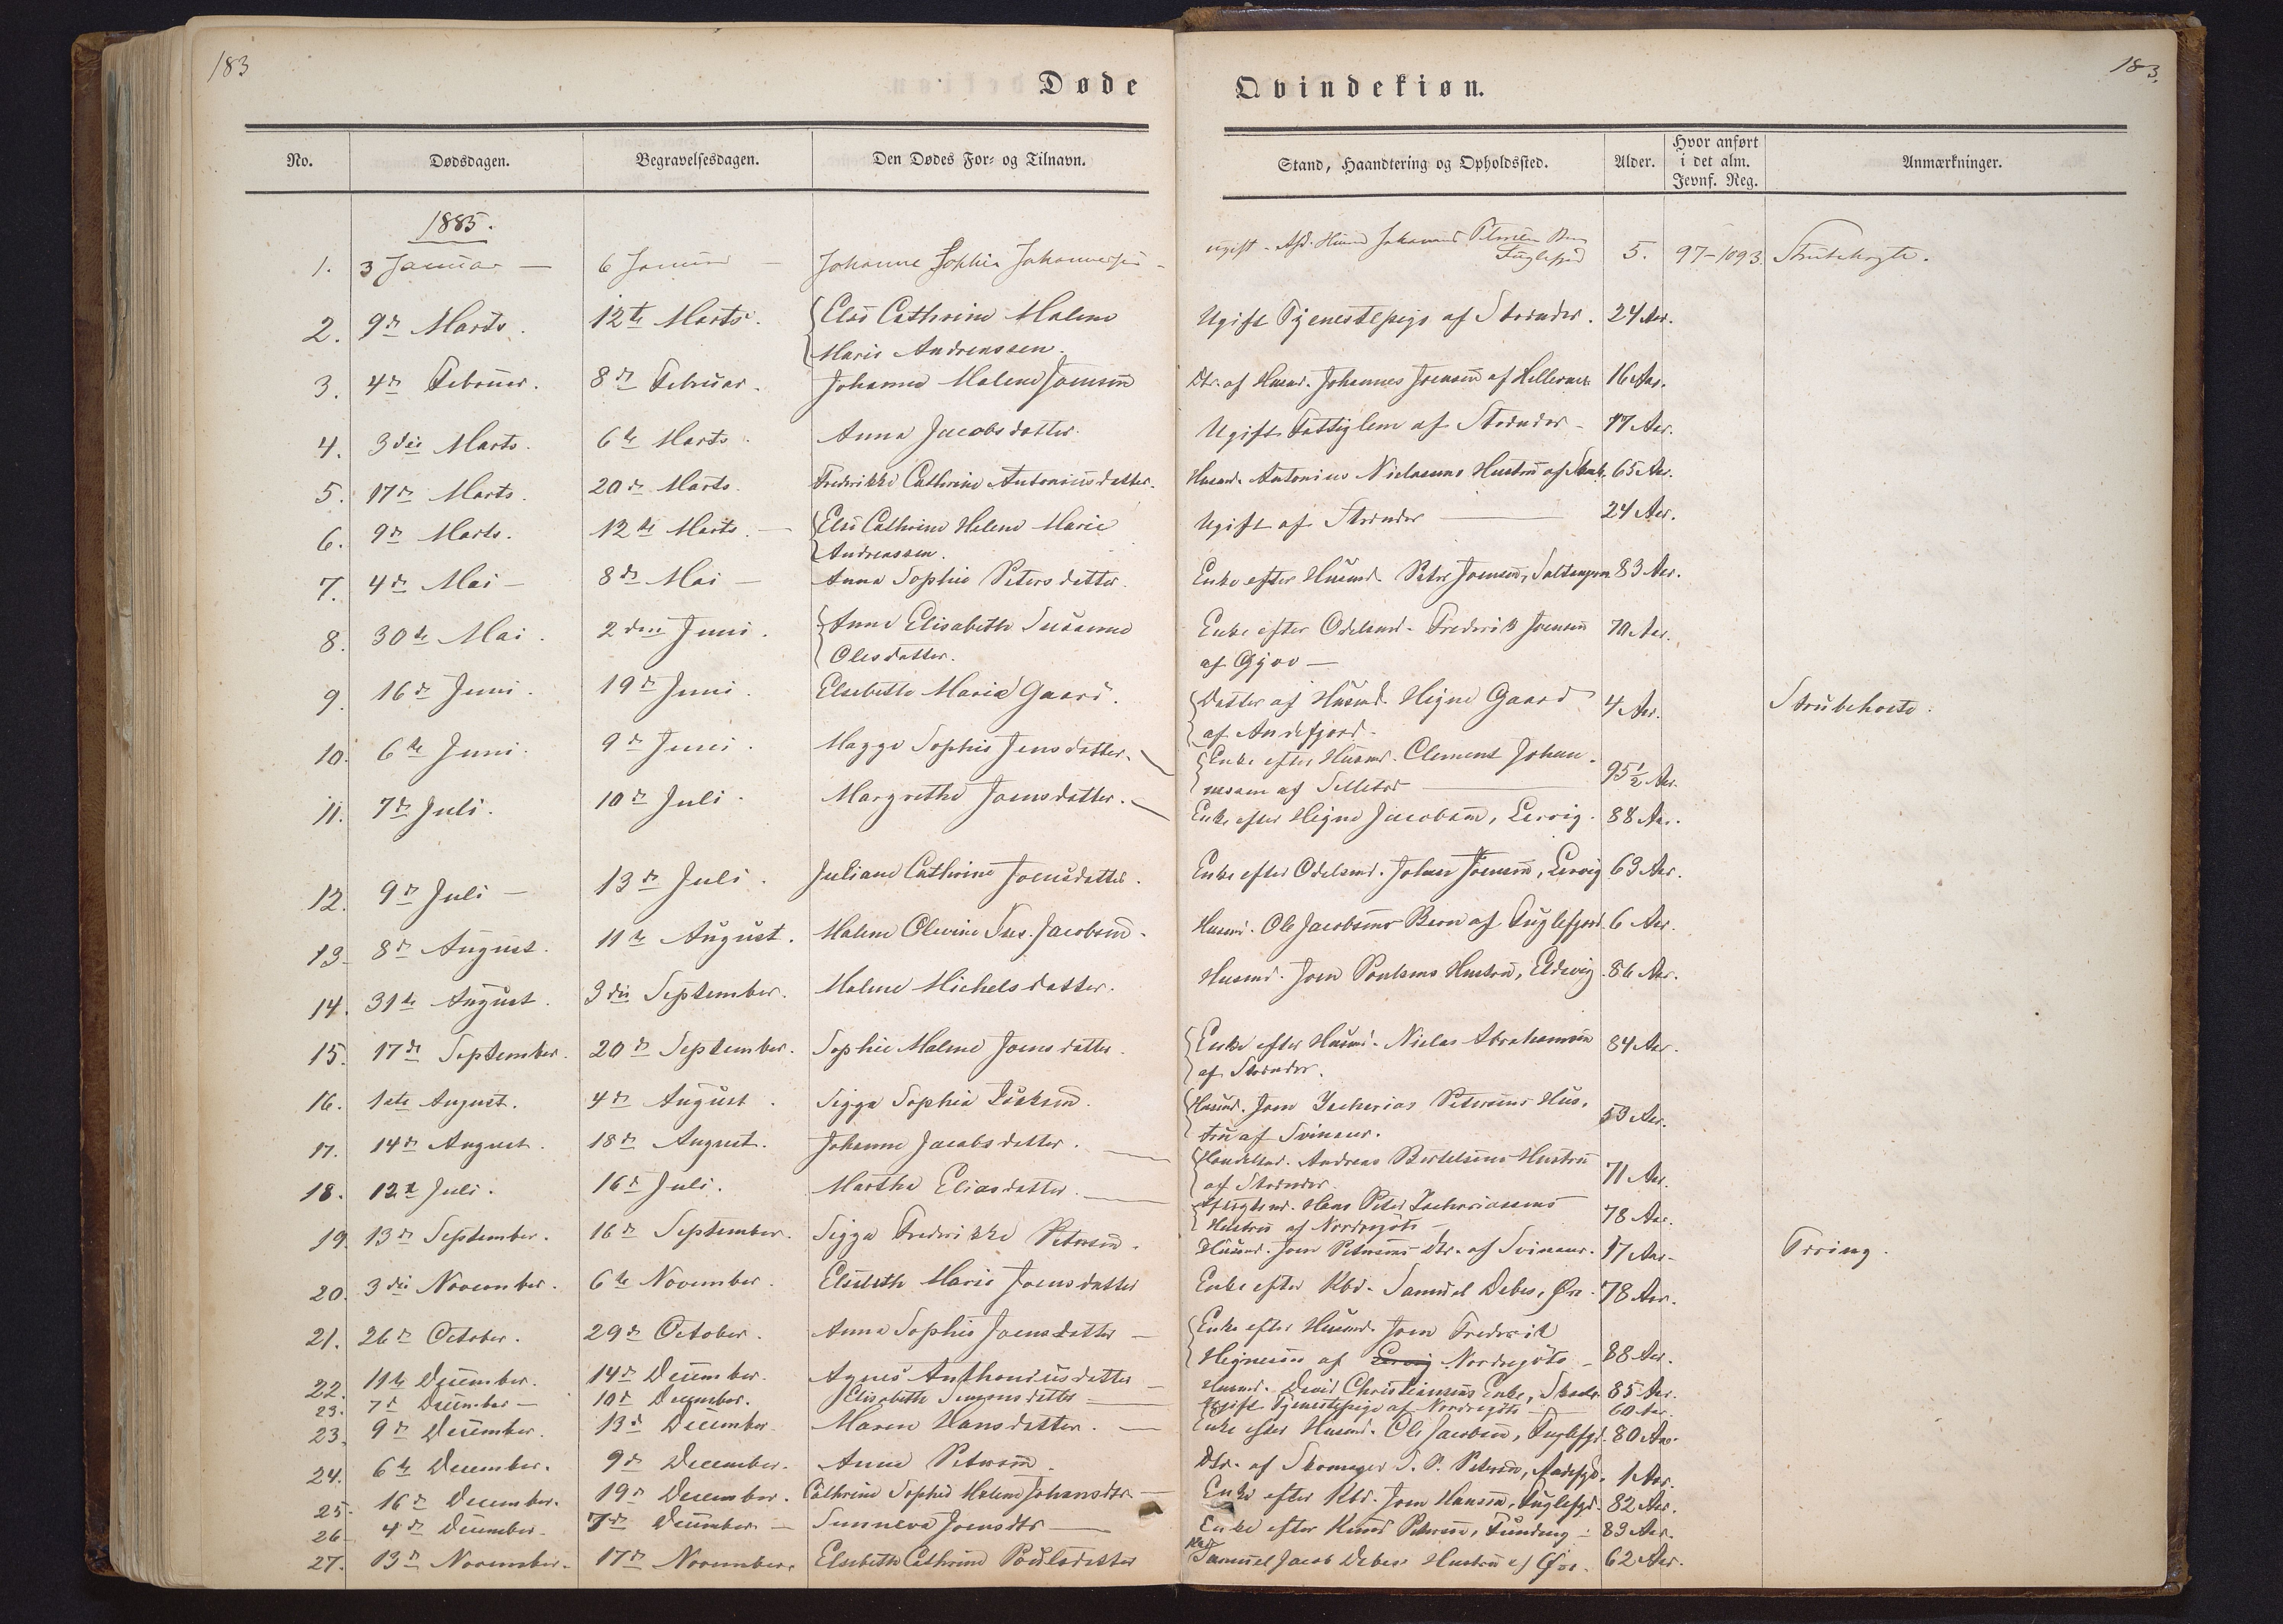 183
183.
Døde
Qvindekiøn.
No.
Dødsdagen.
Begravelsesdagen.
Den Dødes For- og Tilnavn.
Stand, Haandtering og Opholdssted.
Alder.
Hvor anført
i det alm.
Jevnf. Reg.
Anmærkninger.
1885.
1. 3 Januar — 6 Januar — Johanne Sophia 5. 97-1093.
2. 9de Marts. 12te Marts. Else Cathrine Malene Ugift Tjenestepige af Strender. 24 Aar.
Marie Andreassen.
3. 4de Februar. 8de Februar. Johanne Malene Joensen Dtr. af Husmd. Johannes Joensen af 16 Aar.
4. 3die Marts. 6te Marts. Anna Jacobsdatter. Ugift Fattiglem af Strender - 77 Aar.
5. 17de Marts. 20de Marts. Frederikke Cathrine Antoniusdatter. Husmd. Antonius Nielsens Hustru af 65 Aar.
6. 9de Marts. 12te Marts. — Else Cathrine Malene Marie Ugift af Strender — 24 Aar.
Andreassen.
7. 4de Mai — 8de Mai — Anna Sophie Petersdatter. Enke efter Husmd. Peter Joensen, 83 Aar.
8. 30te Mai. 2den Juni. Anne Elisabeth Susanne Enke efter Odelsmd. Frederik Joensen 70 Aar.
Olesdatter. af Gjov —
9. 16de Juni. 19de Juni. Elsebeth Maria Gaard. Datter af Husmd. Høgne Gaard 4 Aar. Strubehoste.
af Andefjord.
10. 6te Juni. 9de Juni. Magge Sophie Jensdatter. — Enke efter Husmd. Clement Johan- 95½ Aar.
nesen af Selletræ —
11. 7de Juli. 10de Juli. Margrethe Joensdatter. — Enke efter Høgne Jacobsen, Lervig. 88 Aar.
12. 9de Juli — 13de Juli. Juliane Cathrine Joensdatter. Enke efter Odelsmd. Johan Joensen, Lervig 63 Aar.
13. 8de August. 11te August. Malene Olevine Sus. Jacobsen. Husmd. Ole Jacobsens Barn af Fuglefjord. 6 Aar.
14. 31te August. 3die September. Malene Michelsdatter. Husmd. Joen Poulsens Hustru, Eldevig. 86 Aar.
15. 17de September. 20de September. Sophie Malene Joensdatter. Enke efter Husmd. Niclas Abrahamsen 84 Aar.
af Strender.
16. 1ste August. 4de August. Sigga Sophia Isaksen. Husmd. Joen Zacharias Petersens Hus- 53 Aar.
tru af Svinaer.
17. 14de August. 18de August. Johanne Jacobsdatter. — Handelsmd. Andreas Bertelsens Hustru 71 Aar.
af Strender.
18. 12te Juli. 16de Juli. Marthe Eliasdatter. — Hans Peter Zachariassens 78 Aar.
Hustru af Nordregøte —
19. 13de September. 16de September. Sigga Frederikke Petersen. Husmd. Joen Petersens Dtr. af Svinaer. 17 Aar. Tæring.
20. 3die November. 6te November. Elsebeth Marie Joensdatter Enke efter Kbd. Samuel Debes, Øre. 78 Aar.
21. 26de October. 29de October. Anna Sophie Joensdatter — Enke efter Husmd. Joen Frederik
Høgnesen af Lervig Nordregøte — 88 Aar.
22. 11te December. 14de December. Agnes Anthoniusdatter — Husmd. David Christiansens Enke, 85 Aar.
23. 7de December — 10de December. Elisabeth Simonsdatter — Ugift Tjenestepige af Nordregøte — 60 Aar.
23. 9de December. 13de December Maren Hansdatter. — Enke efter Husmd. Ole Jacobsen, Fuglefjd. 80 Aar.
24. 6te December. 9de December. Anne Petersen. Dtr. af Skomager J. P. Petersen, Andefjd. 1 Aar.
25. 16de December. 19de December. Cathrine Sophie Malene Johansdtr. — Enke efter Kbd. Joen Hansen, Fuglefjd. 82 Aar.
26. 4de December. 7de December — Sunneva Joensdtr — Enke efter Knud Petersen, Funding — 83 Aar.
27. 13de November. 17de November. Elsebeth Cathrine Poulsdatter Kbd. Samuel Jacob Debes' Hustru af Øre. 62 Aar.